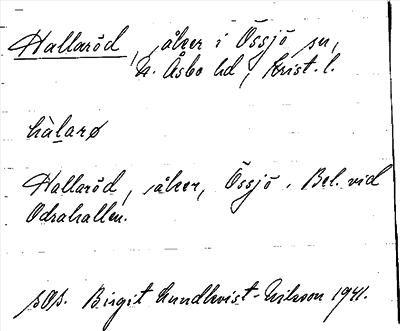 Hallaröd, åker i Össjö sn,
N. Åsbo hd, Krist. l.
hàlarø
Hallaröd, åker, Össjö. Bel. vid
Odrahallen.
Birgit Lundkvist-Nilsson 1941.